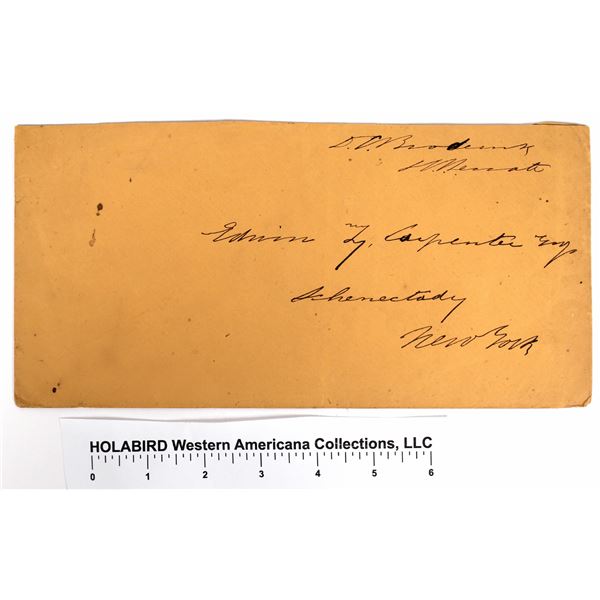 D. C. Broderick
U.S. Senate
Edwin Carpenter Esq
Schenectady
New York
HOLABIRD Western Americana Collections, LLC
0 1 2 3 4 5 6